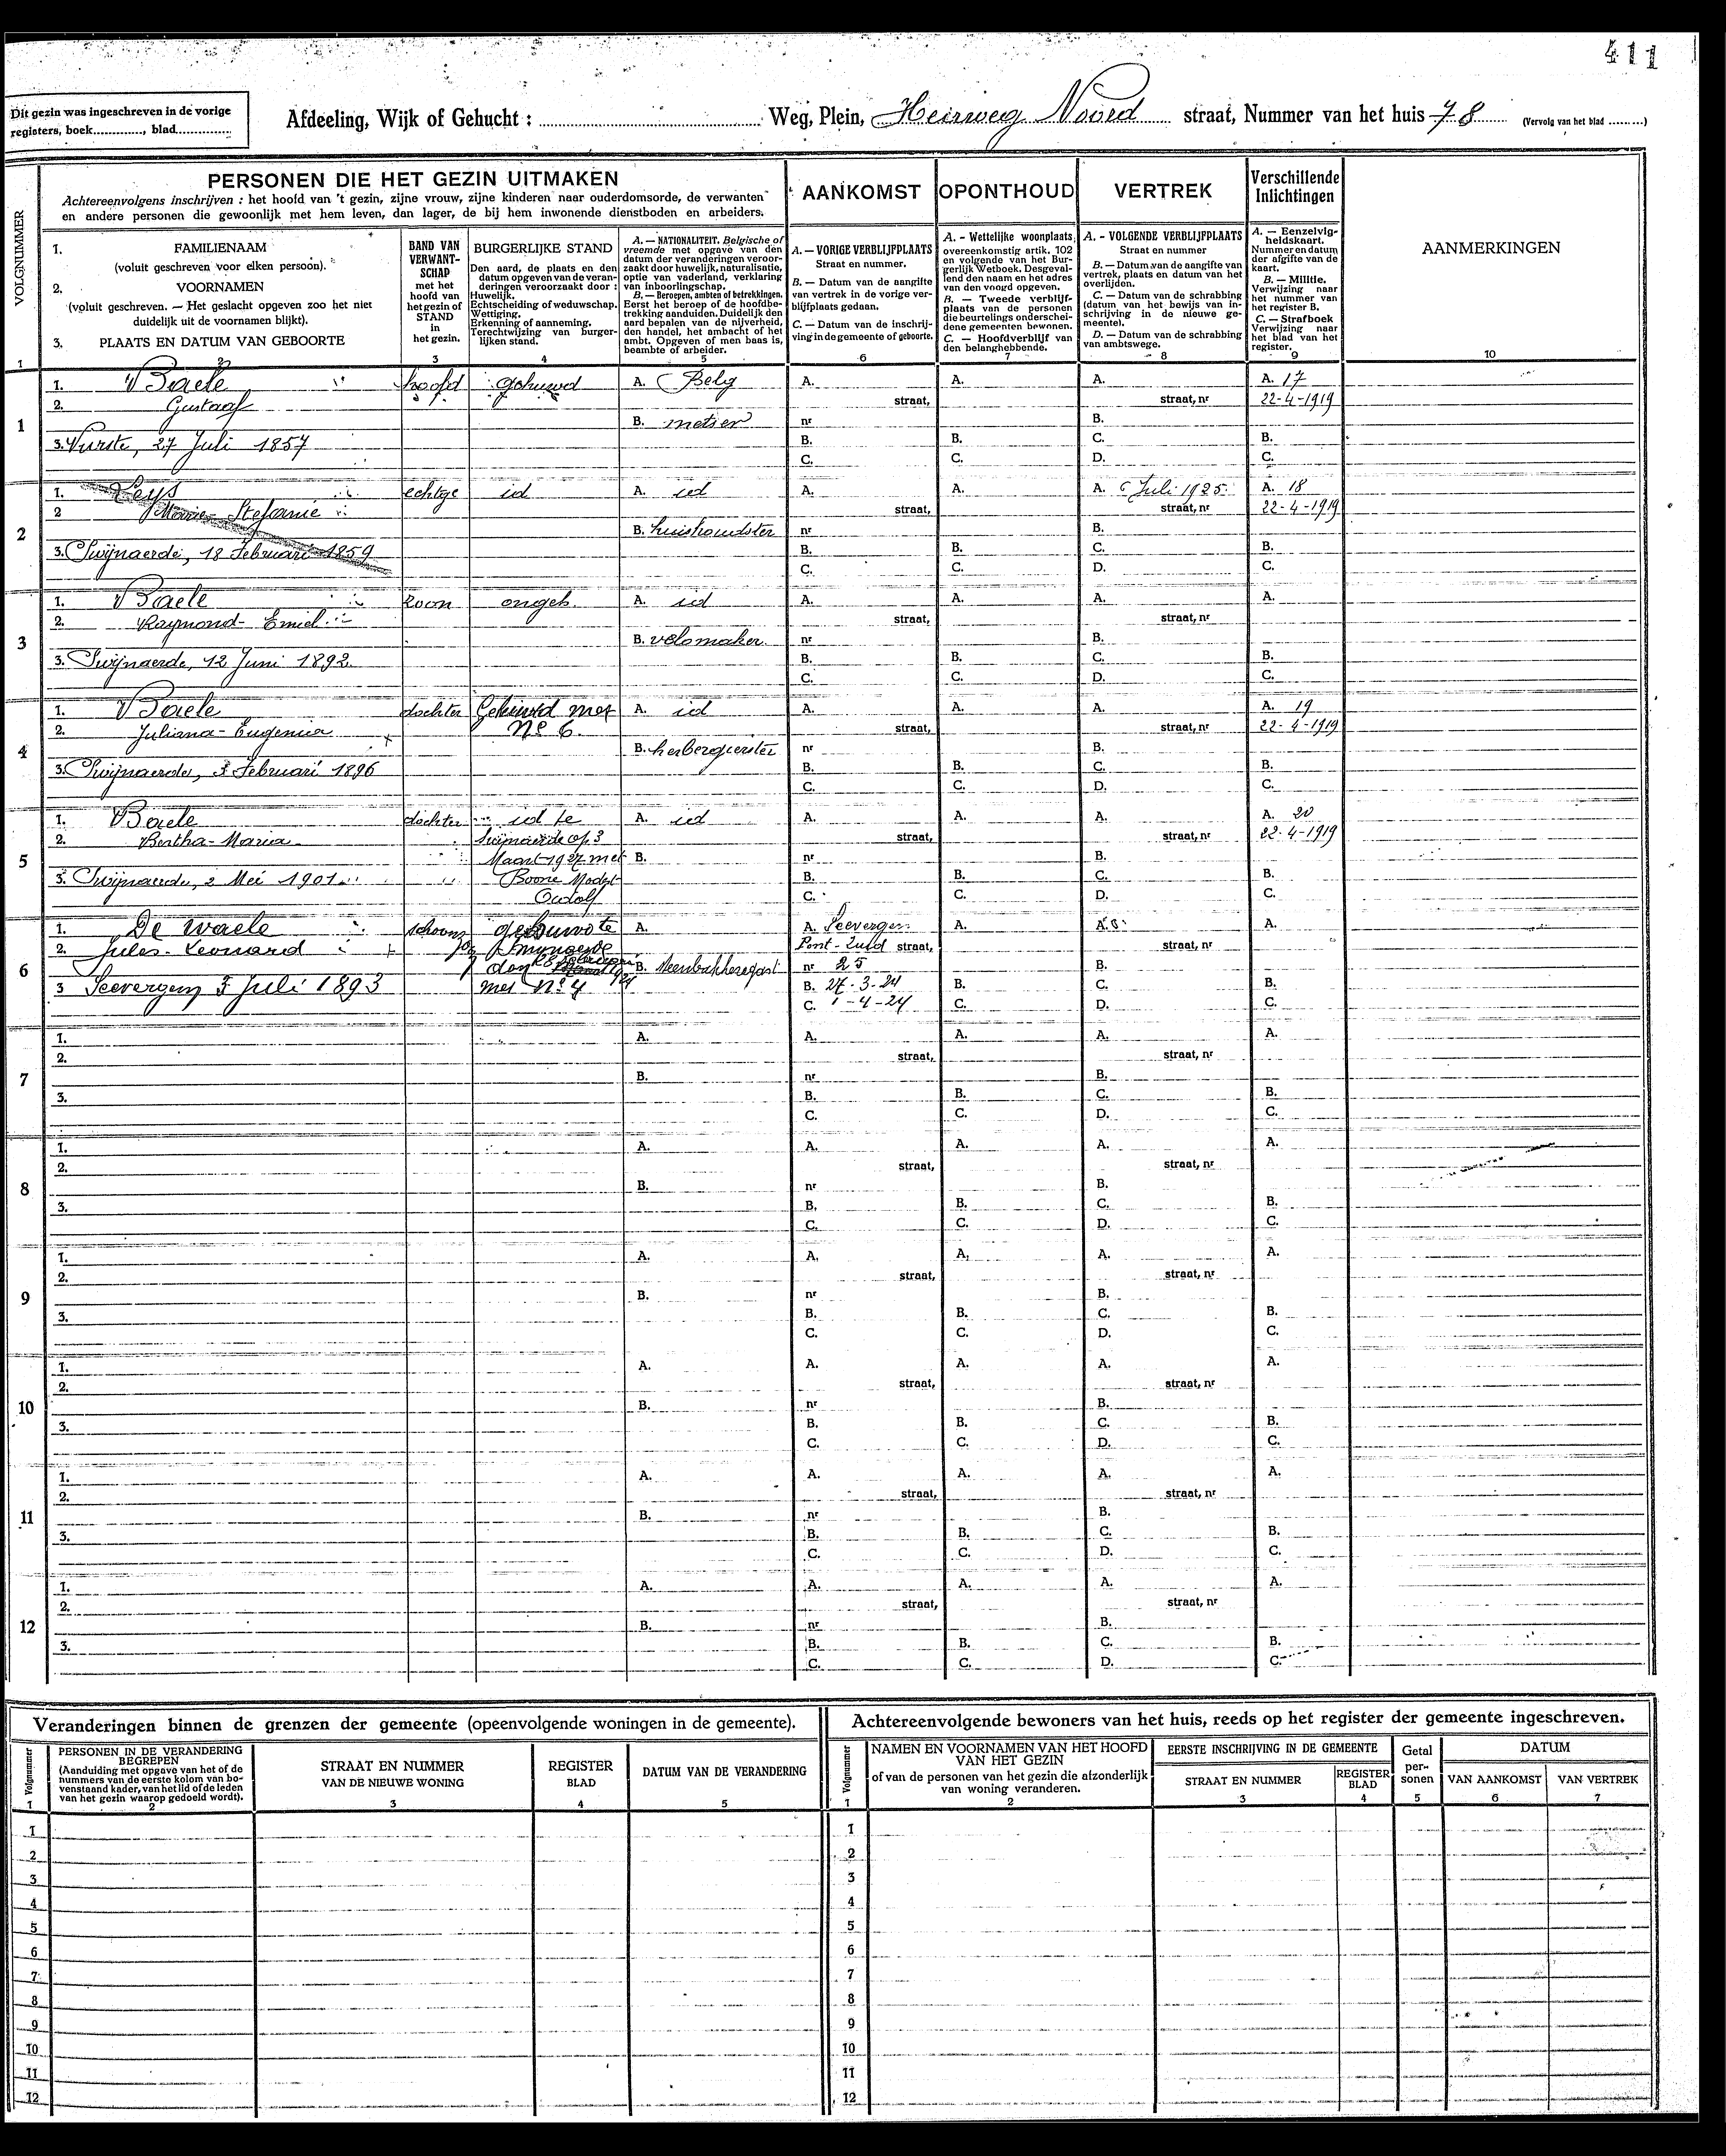 411
Dit gezin was ingeschreven in de vorige
registers, boek............, blad..............
Afdeeling, Wijk of Gehucht : .......... Weg, Plein, Heirweg Noord straat, Nummer van het huis 78 (Vervolg van het blad .........)
VOLGNUMMER
PERSONEN DIE HET GEZIN UITMAKEN
Achtereenvolgens inschrijven : het hoofd van 't gezin, zijne vrouw, zijne kinderen naar ouderdomsorde, de verwanten
en andere personen die gewoonlijk met hem leven, dan lager, de bij hem inwonende dienstboden en arbeiders.
AANKOMST
OPONTHOUD
VERTREK
Verschillende
Inlichtingen
1. FAMILIENAAM
(voluit geschreven voor elken persoon).
2. VOORNAMEN
(voluit geschreven. — Het geslacht opgeven zoo het niet
duidelijk uit de voornamen blijkt).
3. PLAATS EN DATUM VAN GEBOORTE
2
BAND VAN
VERWANT-
SCHAP
met het
hoofd van
het gezin of
STAND
in
het gezin.
3
BURGERLIJKE STAND
Den aard, de plaats en den
datum opgeven van de veran-
deringen veroorzaakt door :
Huwelijk.
Echtscheiding of weduwschap.
Wettiging.
Erkenning of aanneming.
Terechtwijzing van burger-
lijken stand.
4
A. — NATIONALITEIT. Belgische of
vreemde met opgave van den
datum der veranderingen veroor-
zaakt door huwelijk, naturalisatie,
optie van vaderland, verklaring
van inboorlingschap.
B. — Beroepen, ambten of betrekkingen.
Eerst het beroep of de hoofdbe-
trekking aanduiden. Duidelijk den
aard bepalen van de nijverheid,
den handel, het ambacht of het
ambt. Opgeven of men baas is,
beambte of arbeider.
5
A. — VORIGE VERBLIJFPLAATS
Straat en nummer.
B. — Datum van de aangifte
van vertrek in de vorige ver-
blijfplaats gedaan.
C. — Datum van de inschrij-
ving in de gemeente of geboorte.
6
A. - Wettelijke woonplaats,
overeenkomstig artik. 102
en volgende van het Bur-
gerlijk Wetboek. Desgeval-
lend den naam en het adres
van den voogd opgeven.
B. — Tweede verblijf-
plaats van de personen
die beurtelings onderschei-
dene gemeenten bewonen.
C. — Hoofdverblijf van
den belanghebbende.
7
A. - VOLGENDE VERBLIJFPLAATS
Straat en nummer
B. — Datum van de aangifte van
vertrek, plaats en datum van het
overlijden.
C. — Datum van de schrabbing
(datum van het bewijs van in-
schrijving in de nieuwe ge-
meente).
D. — Datum van de schrabbing
van ambtswege.
8
A. — Eenzelvig-
heidskaart.
Nummer en datum
der afgifte van de
kaart.
B. — Militie.
Verwijzing naar
het nummer van
het register B.
C. — Strafboek
Verwijzing naar
het blad van het
register.
9
AANMERKINGEN
10
1
1. Baele hoofd gehuwd A. Belg A. A. A. A. 17
2. Gustaaf straat, straat, nr 22-4-1919
B. metser nr B.
3. Vurste, 27 Juli 1857 B. B. C. B.
C. C. D. C.
2
1. Leys echtge id A. id A. A. A. 6 Juli 1925 A. 18
2 Marie-Stefanie straat, straat, nr 22-4-1919
B. huishoudster nr B.
3. Swijnaerde, 18 Februari 1859 B. B. C. B.
C. C. D. C.
3
1. Baele zoon ongeh. A. id A. A. A. A.
2. Raymond-Emiel straat, straat, nr
B. velomaker nr B.
3. Swijnaerde, 12 Juni 1892 B. B. C. B.
C. C. D. C.
4
1. Baele dochter Gehuwd met A. id A. A. A. A. 19
2. Juliana-Eugenia No 6. straat, straat, nr 22-4-1919
B. herbergierster nr B.
3. Swijnaerde, 3 Februari 1896 B. B. C. B.
C. C. D. C.
5
1. Baele dochter id te A. id A. A. A. A. 20
2. Bertha-Maria Swijnaerde op 3 straat, straat, nr 22-4-1919
Maart 1927 met B. nr B.
3. Swijnaerde, 2 Mei 1901 Boone Modest B. B. C. B.
Odolf C. C. D. C.
6
1. De waele schoonz gehuwd te A. A. Seevergem A. A. A.
2. Jules-Leonard Swijnaerde Pont-Zuid straat, straat, nr
den B. steenbakkersgast nr 25 B.
3 Seevergem 5 Juli 1893 met No 4 B. 27-3-24 B. C. B.
C. 1-4-24 C. D. C.
7
1. A. A. A. A. A.
2. straat, straat, nr
B. nr B.
3. B. B. C. B.
C. C. D. C.
8
1. A. A. A. A. A.
2. straat, straat, nr
B. nr B.
3. B. B. C. B.
C. C. D. C.
9
1. A. A. A. A. A.
2. straat, straat, nr
B. nr B.
3. B. B. C. B.
C. C. D. C.
10
1. A. A. A. A. A.
2. straat, straat, nr
B. nr B.
3. B. B. C. B.
C. C. D. C.
11
1. A. A. A. A. A.
2. straat, straat, nr
B. nr B.
3. B. B. C. B.
C. C. D. C.
12
1. A. A. A. A. A.
2. straat, straat, nr
B. nr B.
3. B. B. C. B.
C. C. D. C.
Veranderingen binnen de grenzen der gemeente (opeenvolgende woningen in de gemeente).
Volgnummer
1
PERSONEN IN DE VERANDERING
BEGREPEN
(Aanduiding met opgave van het of de
nummers van de eerste kolom van bo-
venstaand kader, van het lid of de leden
van het gezin waarop gedoeld wordt).
2
STRAAT EN NUMMER
VAN DE NIEUWE WONING
3
REGISTER
BLAD
4
DATUM VAN DE VERANDERING
5
1
2
3
4
5
6
7
8
9
10
11
12
Achtereenvolgende bewoners van het huis, reeds op het register der gemeente ingeschreven.
Volgnummer
1
NAMEN EN VOORNAMEN VAN HET HOOFD
VAN HET GEZIN
of van de personen van het gezin die afzonderlijk
van woning veranderen.
2
EERSTE INSCHRIJVING IN DE GEMEENTE
STRAAT EN NUMMER
3
REGISTER
BLAD
4
Getal
per-
sonen
5
DATUM
VAN AANKOMST
6
VAN VERTREK
7
1
2
3
4
5
6
7
8
9
10
11
12